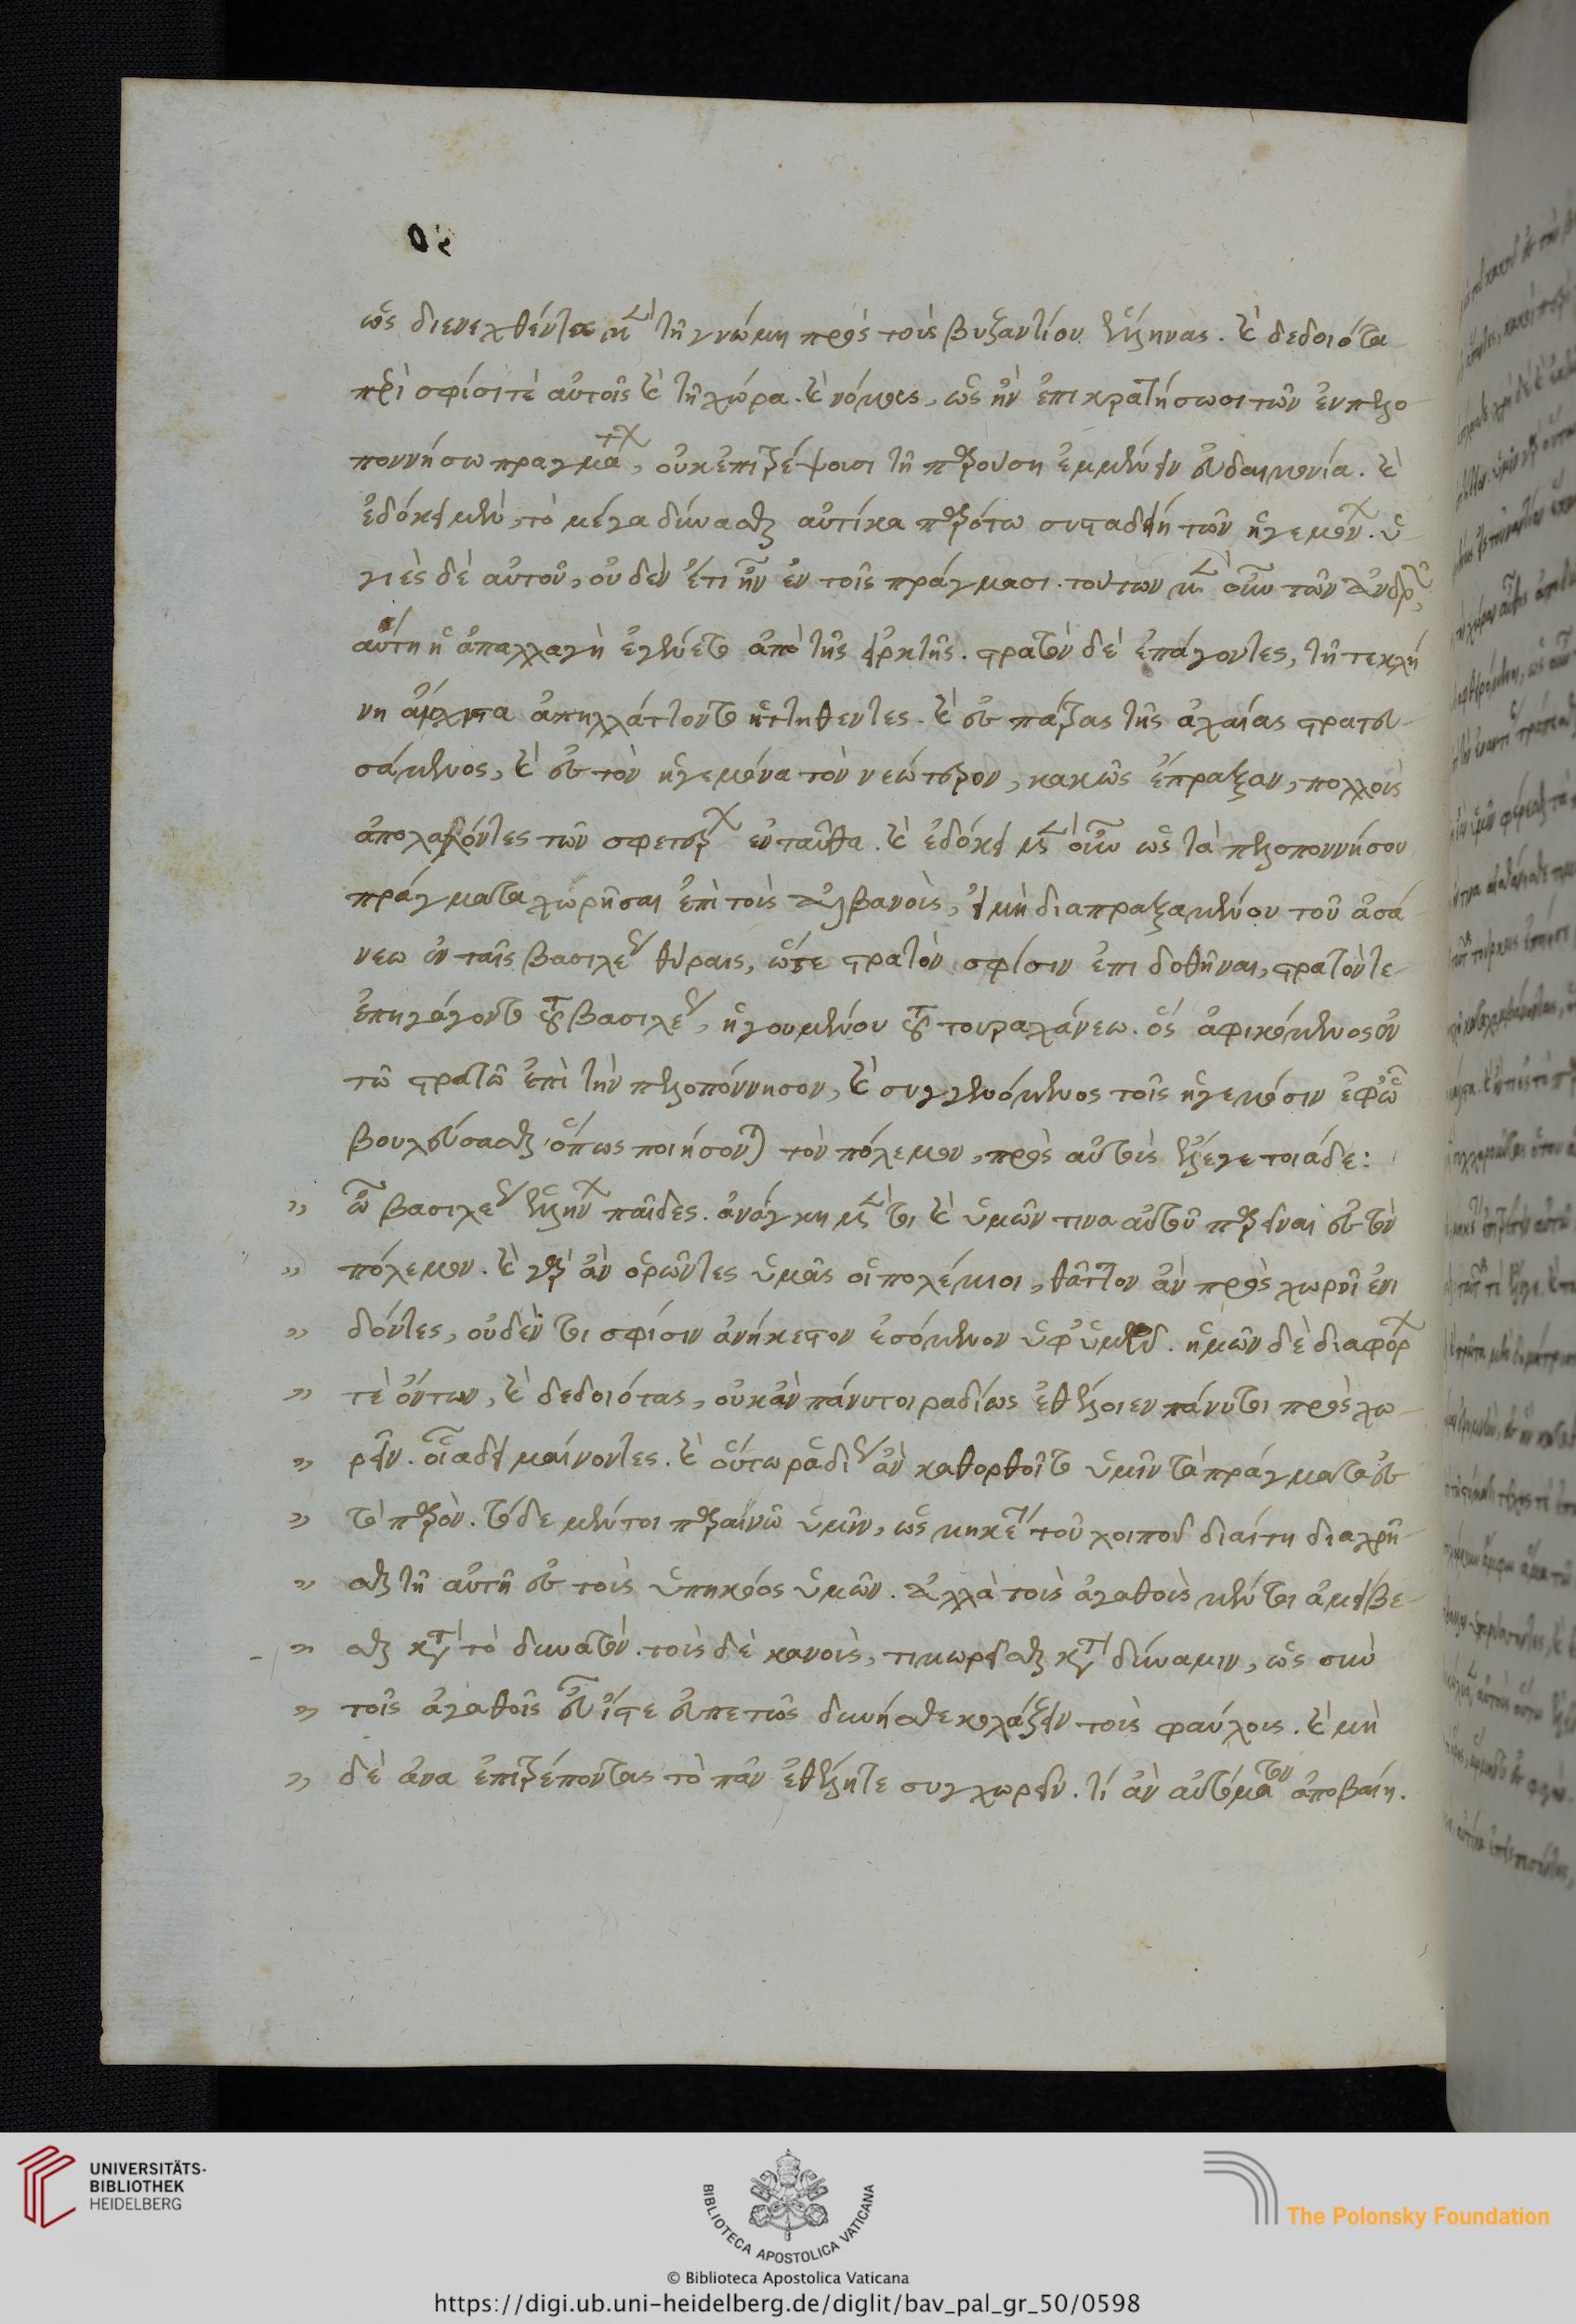 ὡς διενεχθέντες μὲν τῆ γνώμη πρὸς τοὺς βυζαντίου ἕλληνας. καὶ δεδοιότα
περὶ σφίσι τὲ αὐτοῖς καὶ τῆ χώρα. καὶ ὡς ἢν ἐπικρατήσωσι τῶν ἐν πελο
ποννήσω πραγμάτων, οὐκ ἐπιτρέψουσι τῆ παρούση ἐμμένειν εὐδαιμονία. καὶ
ἐδόκει μὲν τὸ μέγα δύνασθαι αὐτίκα τῶν ἡγεμόνων. ὑ
γιὲς δὲ αὐτοῦ, οὐδὲν ἔτι ἦν ἐν τοῖς πράγμασι. τούτων μὲν οὖν τῶν ἀνδρῶν,
αὕτη ἡ ἀπαλλαγὴ ἐγένετο ἀπὸ τῆς εἱρκτῆς. στρατὸν δὲ ἐπάγοντες, τῆ τε κλή
νη ἀπηλλάττοντο ἡττηθέντες. καὶ ἐς πάτρας τῆς ἀχαΐας στρατευ
σάμενος, καὶ ἐς τὸν ἡγεμόνα τὸν νεώτερον, κακῶς ἔπραξαν, πολλοὺς
ἀποβαλόντες τῶν σφετέρων ἐνταῦθα. καὶ ἐδόκει μὲν οὖν ὡς τὰ πελοποννήσου
πράγματα χωρῆσαι ἐπὶ τοὺς ἀλβανοὺς, εἰ μὴ διαπραξαμένου τοῦ ἀσά
νεω ἐν ταῖς βασιλέως θύραις, ὥστε στρατὸν σφίσιν ἐπιδοθῆναι, στρατόν τε
ἐπηγάγοντο τοῦ βασιλέως, ἡγουμένου τοῦ τουραχάνεω. ὃς ἀφικόμενος ἐν
τῶ στρατῶ ἐπὶ τὴν πελοπόννησον, καὶ συγγενόμενος τοῖς ἡγεμόσιν ἐφ' ὧ
βουλεύσασθαι ὅπως ποιήσονται τὸν πόλεμον, πρὸς αὐτοὺς ἔλεγε τοιάδε:
" ὦ βασιλέως ἑλλήνων παῖδες. ἀνάγκη μέν τοι καὶ ὑμῶν τινα αὐτοῦ παρεῖναι ἐς τὸν
" πόλεμον. καὶ γὰρ ἂν ὁρῶντες ὑμᾶς οἱ πολέμιοι, θᾶττον ἂν προσχωροῖ ἐνι
" δόντες, οὐδέν τι σφίσιν ἀνήκεστον ἐσόμενον ὑφ' ὑμῶν. ἡμῶν δὲ διαφόρων
" τὲ ὄντων, καὶ δεδοιότας, οὐκ ἂν πάνυ τοι ραδίως ἐθέλοιεν πάνυ τι προσχω
" ρεῖν. οἷα δειμαίνοντες. καὶ οὕτω ῥαδίως ἂν κατορθοῖτο ὑμῖν τὰ πράγματα ἐς
" τὸ παρὸν. τόδε μέντοι παραινῶ ὑμῖν, ὡς μηκέτι τοῦ λοιποῦ διαίτη διαχρῆ
" σθαι τῆ αὐτῆ ἐς τοὺς ὑπηκόος ὑμῶν. ἀλλὰ τοὺς ἀγαθοὺς μέν τι ἀμείβε
" σθαι κατὰ τὸ δυνατόν. τοὺς δὲ κακοὺς, τιμωρεῖσθαι κατὰ δύναμιν, ὡς σὺν
" τοῖς ἀγαθοῖς εὖ ἴστε εὐπετῶς δυνήσεσθε κολάζειν τοὺς φαύλους. καὶ μὴ
" δὲ ἀνα ἐπιτρέποντας τὸ πᾶν ἐθέλητε συγχωρεῖν. τί ἂν αὐτόματον ἀποβαίη.
UNIVERSITÄTS-
BIBLIOTHEK
HEIDELBERG
BIBLIOTECA APOSTOLICA VATICANA
The Polonsky Foundation
© Biblioteca Apostolica Vaticana
https://digi.ub.uni-heidelberg.de/diglit/bav_pal_gr_50/0598